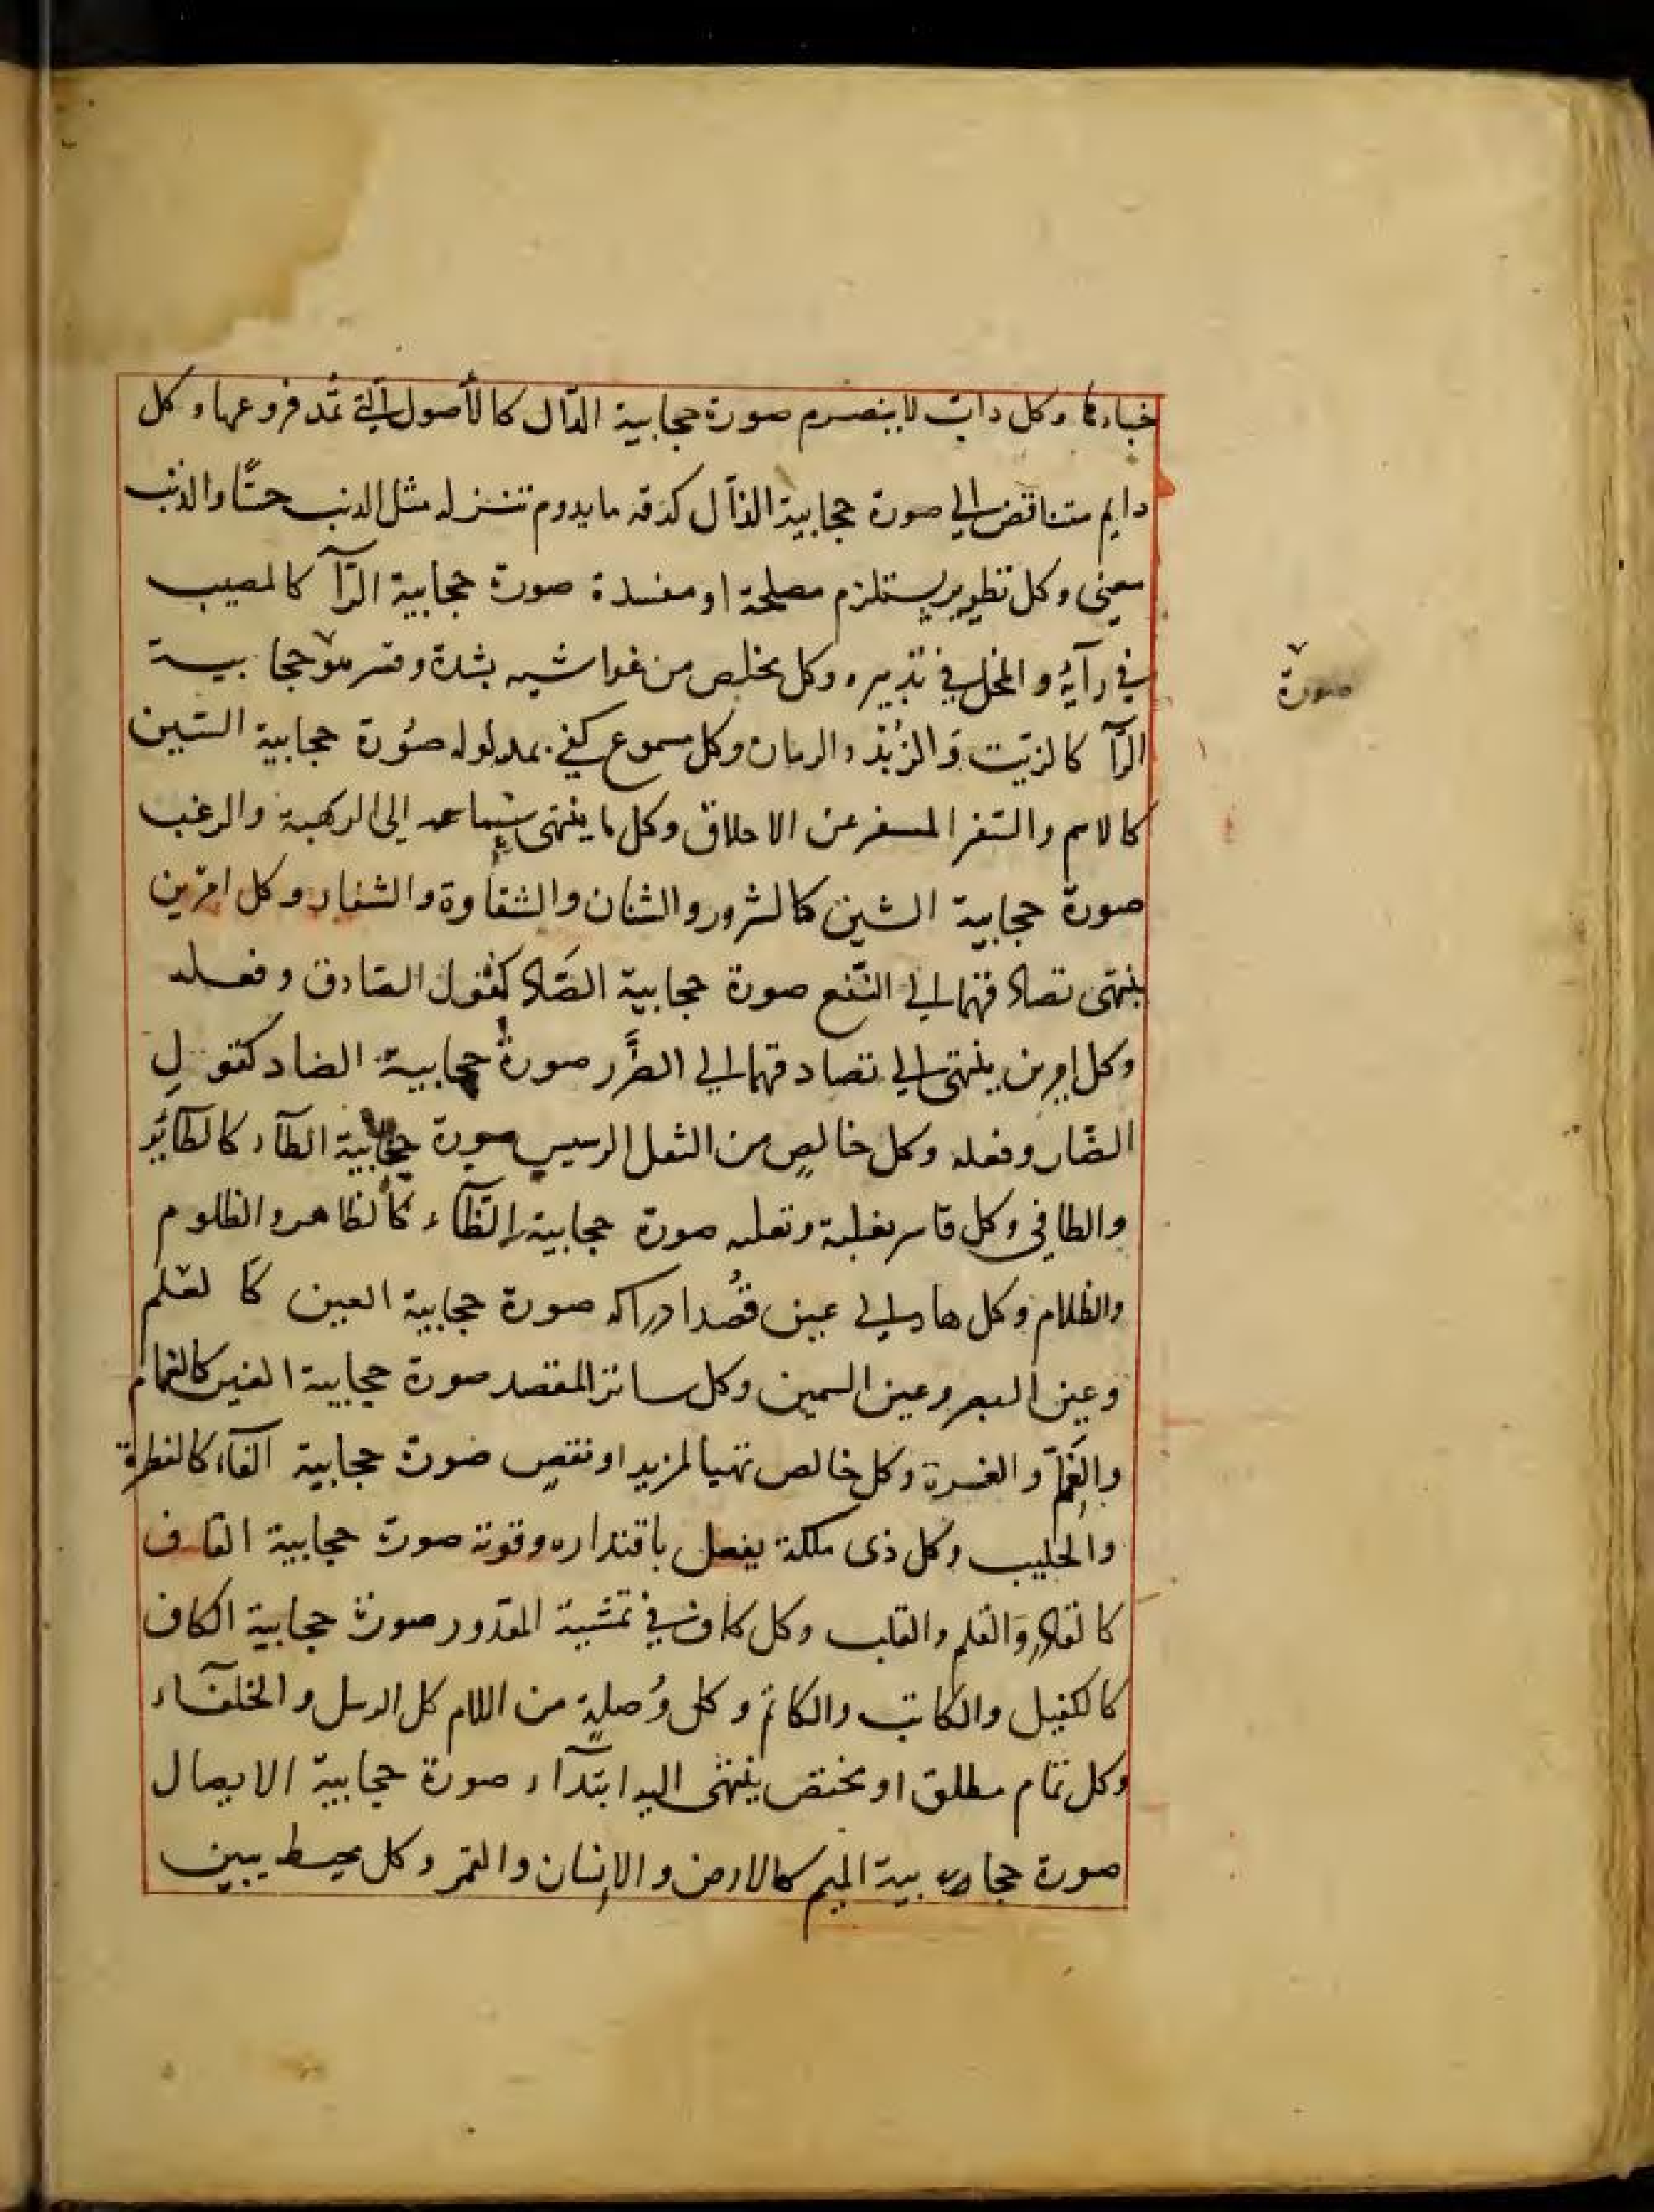 وكل دات لا ينصرم صورة حجابية الدّال كالأصول التي تمد فروعها وكل
دايم متناقض الي صورة حجابية الذآل كدقه ما يدوم تنزله مثل الدنب حسّا والذنب
معنى وكل تطوير يستلزم مصلحة او مفسدة صورة حجابية الرّآ كالمصيب
في رآيهُ والمخل في تدبيره وكل مخلص من غواشيه بشدة وقسر حجابيـــة
صورة
الزآ كالزيت وَالزُبْد والرمان وكل مسموع كفي بمدلوله صُورة حجابية السّين
كالاسم والسّفر المسفر عن الاخلاق وكل ما ينتهى سماعه إلى الرهبة والرغب
صورة حجابية الشين كالشرور والشنان والشقاوة والشفار وكل امرين
ينتهى تصادقهما الي النّفع صورة حجابية الصّاد كقول الصّادق وفعـــله
وكل امرين ينتهى الي تصادقهما الي الضَّرر صورة حجابية الضاد كقول
الضّار وفعله وكل خالصٍ من الثفل الرسيب صورة حجابية الطآء كالطآئر
والطافي وكل قاسر بغلبة صورة حجابية الظّآء كالظاهر والظلوم
والظلام وكل هاد الي عين قُصد ادراكه صورة حجابية العين كَالعَلم
وعين البصر وعين اليمين وكل ساتر المقصد صورة حجابية الغين كالغمام
والغَمّ والغمرة وكل خالص تهيا لمزيد او نقصٍ صورة حجابية الفآء كالفطرة
والحليب وكل ذى ملكة يفعل باقتداره وقوته صورة حجابية القاف
كالقادر وَالقلم والقلب وكل كاف في تمشية المقدور صورة حجابية الكاف
كالكفيل والكاتب والكاتم وكل وُصلةٍ من اللام كل الرسل والخلفآء
وكل تمام مطلق او مختص ينتهى اليه ابتدآء صورة حجابية الايصال
صورة حجابية الميم كالارض والانسان والقمر وكل محيط يبين